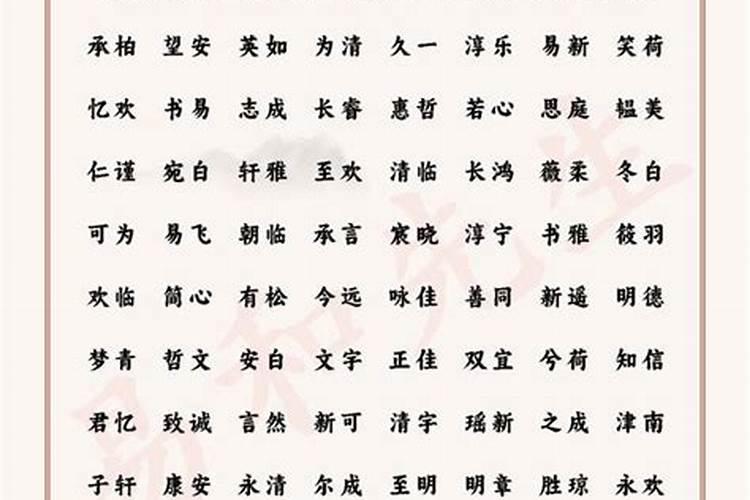 承柏 望安 英如 为清 久一 淳乐 易新 笑荷
忆欢 书易 志成 长睿 惠哲 若心 思庭 韫美
仁谨 宛白 轩雅 至欢 清临 长鸿 薇柔 冬白
可为 易飞 朝临 承言 宸晓 淳宁 书雅 筱羽
欢临 简心 有松 今远 咏佳 善同 新遥 明德
梦青 哲文 安白 文字 正佳 双宜 兮荷 知信
君忆 致诚 言然 新可 清字 瑶新 之成 津南
子轩 康安 永清 尔成 至明 明章 胜琼 永欢
易和先生